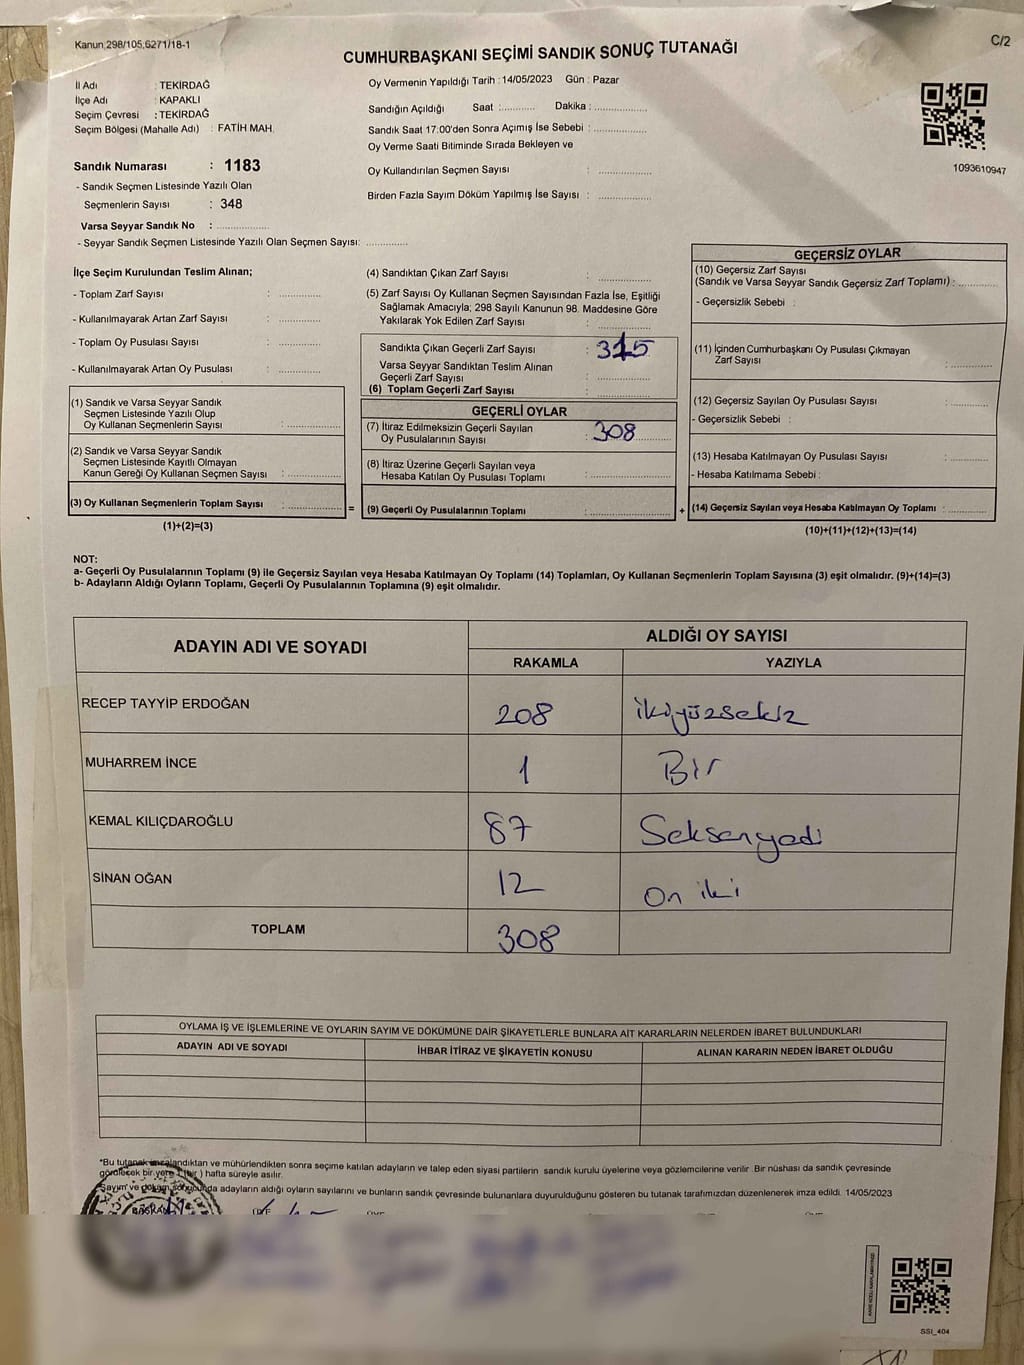 Kanun;298/105,6271/18-1
C/2
CUMHURBAŞKANI SEÇİMİ SANDIK SONUÇ TUTANAĞI
İl Adı : TEKİRDAĞ
İlçe Adı : KAPAKLI
Seçim Çevresi : TEKİRDAĞ
Seçim Bölgesi (Mahalle Adı) : FATİH MAH.
Sandık Numarası : 1183
- Sandık Seçmen Listesinde Yazılı Olan
Seçmenlerin Sayısı : 348
Varsa Seyyar Sandık No : ................
- Seyyar Sandık Seçmen Listesinde Yazılı Olan Seçmen Sayısı: ............
Oy Vermenin Yapıldığı Tarih : 14/05/2023 Gün : Pazar
Sandığın Açıldığı Saat :........... Dakika : ................
Sandık Saat 17:00'den Sonra Açımış İse Sebebi : ................
Oy Verme Saati Bitiminde Sırada Bekleyen ve
Oy Kullandırılan Seçmen Sayısı : ................
Birden Fazla Sayım Döküm Yapılmış İse Sayısı : ................
1093610947
İlçe Seçim Kurulundan Teslim Alınan;
- Toplam Zarf Sayısı : ............
- Kullanılmayarak Artan Zarf Sayısı : ............
- Toplam Oy Pusulası Sayısı : ............
- Kullanılmayarak Artan Oy Pusulası : ............
(1) Sandık ve Varsa Seyyar Sandık
Seçmen Listesinde Yazılı Olup
Oy Kullanan Seçmenlerin Sayısı : ................
(2) Sandık ve Varsa Seyyar Sandık
Seçmen Listesinde Kayıtlı Olmayan
Kanun Gereği Oy Kullanan Seçmen Sayısı : ................
(3) Oy Kullanan Seçmenlerin Toplam Sayısı : ................
(1)+(2)=(3)
(4) Sandıktan Çıkan Zarf Sayısı : ................
(5) Zarf Sayısı Oy Kullanan Seçmen Sayısından Fazla İse, Eşitliği
Sağlamak Amacıyla; 298 Sayılı Kanunun 98. Maddesine Göre
Yakılarak Yok Edilen Zarf Sayısı : ................
Sandıkta Çıkan Geçerli Zarf Sayısı : 315
Varsa Seyyar Sandıktan Teslim Alınan
Geçerli Zarf Sayısı : ................
(6) Toplam Geçerli Zarf Sayısı : ................
GEÇERLİ OYLAR
(7) İtiraz Edilmeksizin Geçerli Sayılan
Oy Pusulalarının Sayısı : 308
(8) İtiraz Üzerine Geçerli Sayılan veya
Hesaba Katılan Oy Pusulası Toplamı : ................
= (9) Geçerli Oy Pusulalarının Toplamı : ................ +
GEÇERSİZ OYLAR
(10) Geçersiz Zarf Sayısı
(Sandık ve Varsa Seyyar Sandık Geçersiz Zarf Toplamı) : ............
- Geçersizlik Sebebi :
(11) İçinden Cumhurbaşkanı Oy Pusulası Çıkmayan
Zarf Sayısı : ............
(12) Geçersiz Sayılan Oy Pusulası Sayısı : ............
- Geçersizlik Sebebi :
(13) Hesaba Katılmayan Oy Pusulası Sayısı : ............
- Hesaba Katılmama Sebebi :
(14) Geçersiz Sayılan veya Hesaba Katılmayan Oy Toplamı : ............
(10)+(11)+(12)+(13)=(14)
NOT:
a- Geçerli Oy Pusulalarının Toplamı (9) ile Geçersiz Sayılan veya Hesaba Katılmayan Oy Toplamı (14) Toplamları, Oy Kullanan Seçmenlerin Toplam Sayısına (3) eşit olmalıdır. (9)+(14)=(3)
b- Adayların Aldığı Oyların Toplamı, Geçerli Oy Pusulalarının Toplamına (9) eşit olmalıdır.
ADAYIN ADI VE SOYADI ALDIĞI OY SAYISI
RAKAMLA YAZIYLA
RECEP TAYYİP ERDOĞAN 208 ikiyüzsekiz
MUHARREM İNCE 1 Bir
KEMAL KILIÇDAROĞLU 87 Seksenyedi
SİNAN OĞAN 12 On iki
TOPLAM 308
OYLAMA İŞ VE İŞLEMLERİNE VE OYLARIN SAYIM VE DÖKÜMÜNE DAİR ŞİKAYETLERLE BUNLARA AİT KARARLARIN NELERDEN İBARET BULUNDUKLARI
ADAYIN ADI VE SOYADI İHBAR İTİRAZ VE ŞİKAYETİN KONUSU ALINAN KARARIN NEDEN İBARET OLDUĞU
*Bu tutanak imzalandıktan ve mühürlendikten sonra seçime katılan adayların ve talep eden siyasi partilerin sandık kurulu üyelerine veya gözlemcilerine verilir. Bir nüshası da sandık çevresinde
görülecek bir yere 1 (bir ) hafta süreyle asılır.
Sayım ve döküm sonucunda adayların aldığı oyların sayılarını ve bunların sandık çevresinde bulunanlara duyurulduğunu gösteren bu tutanak tarafımızdan düzenlenerek imza edildi. 14/05/2023
BAŞKAN
SSI_404